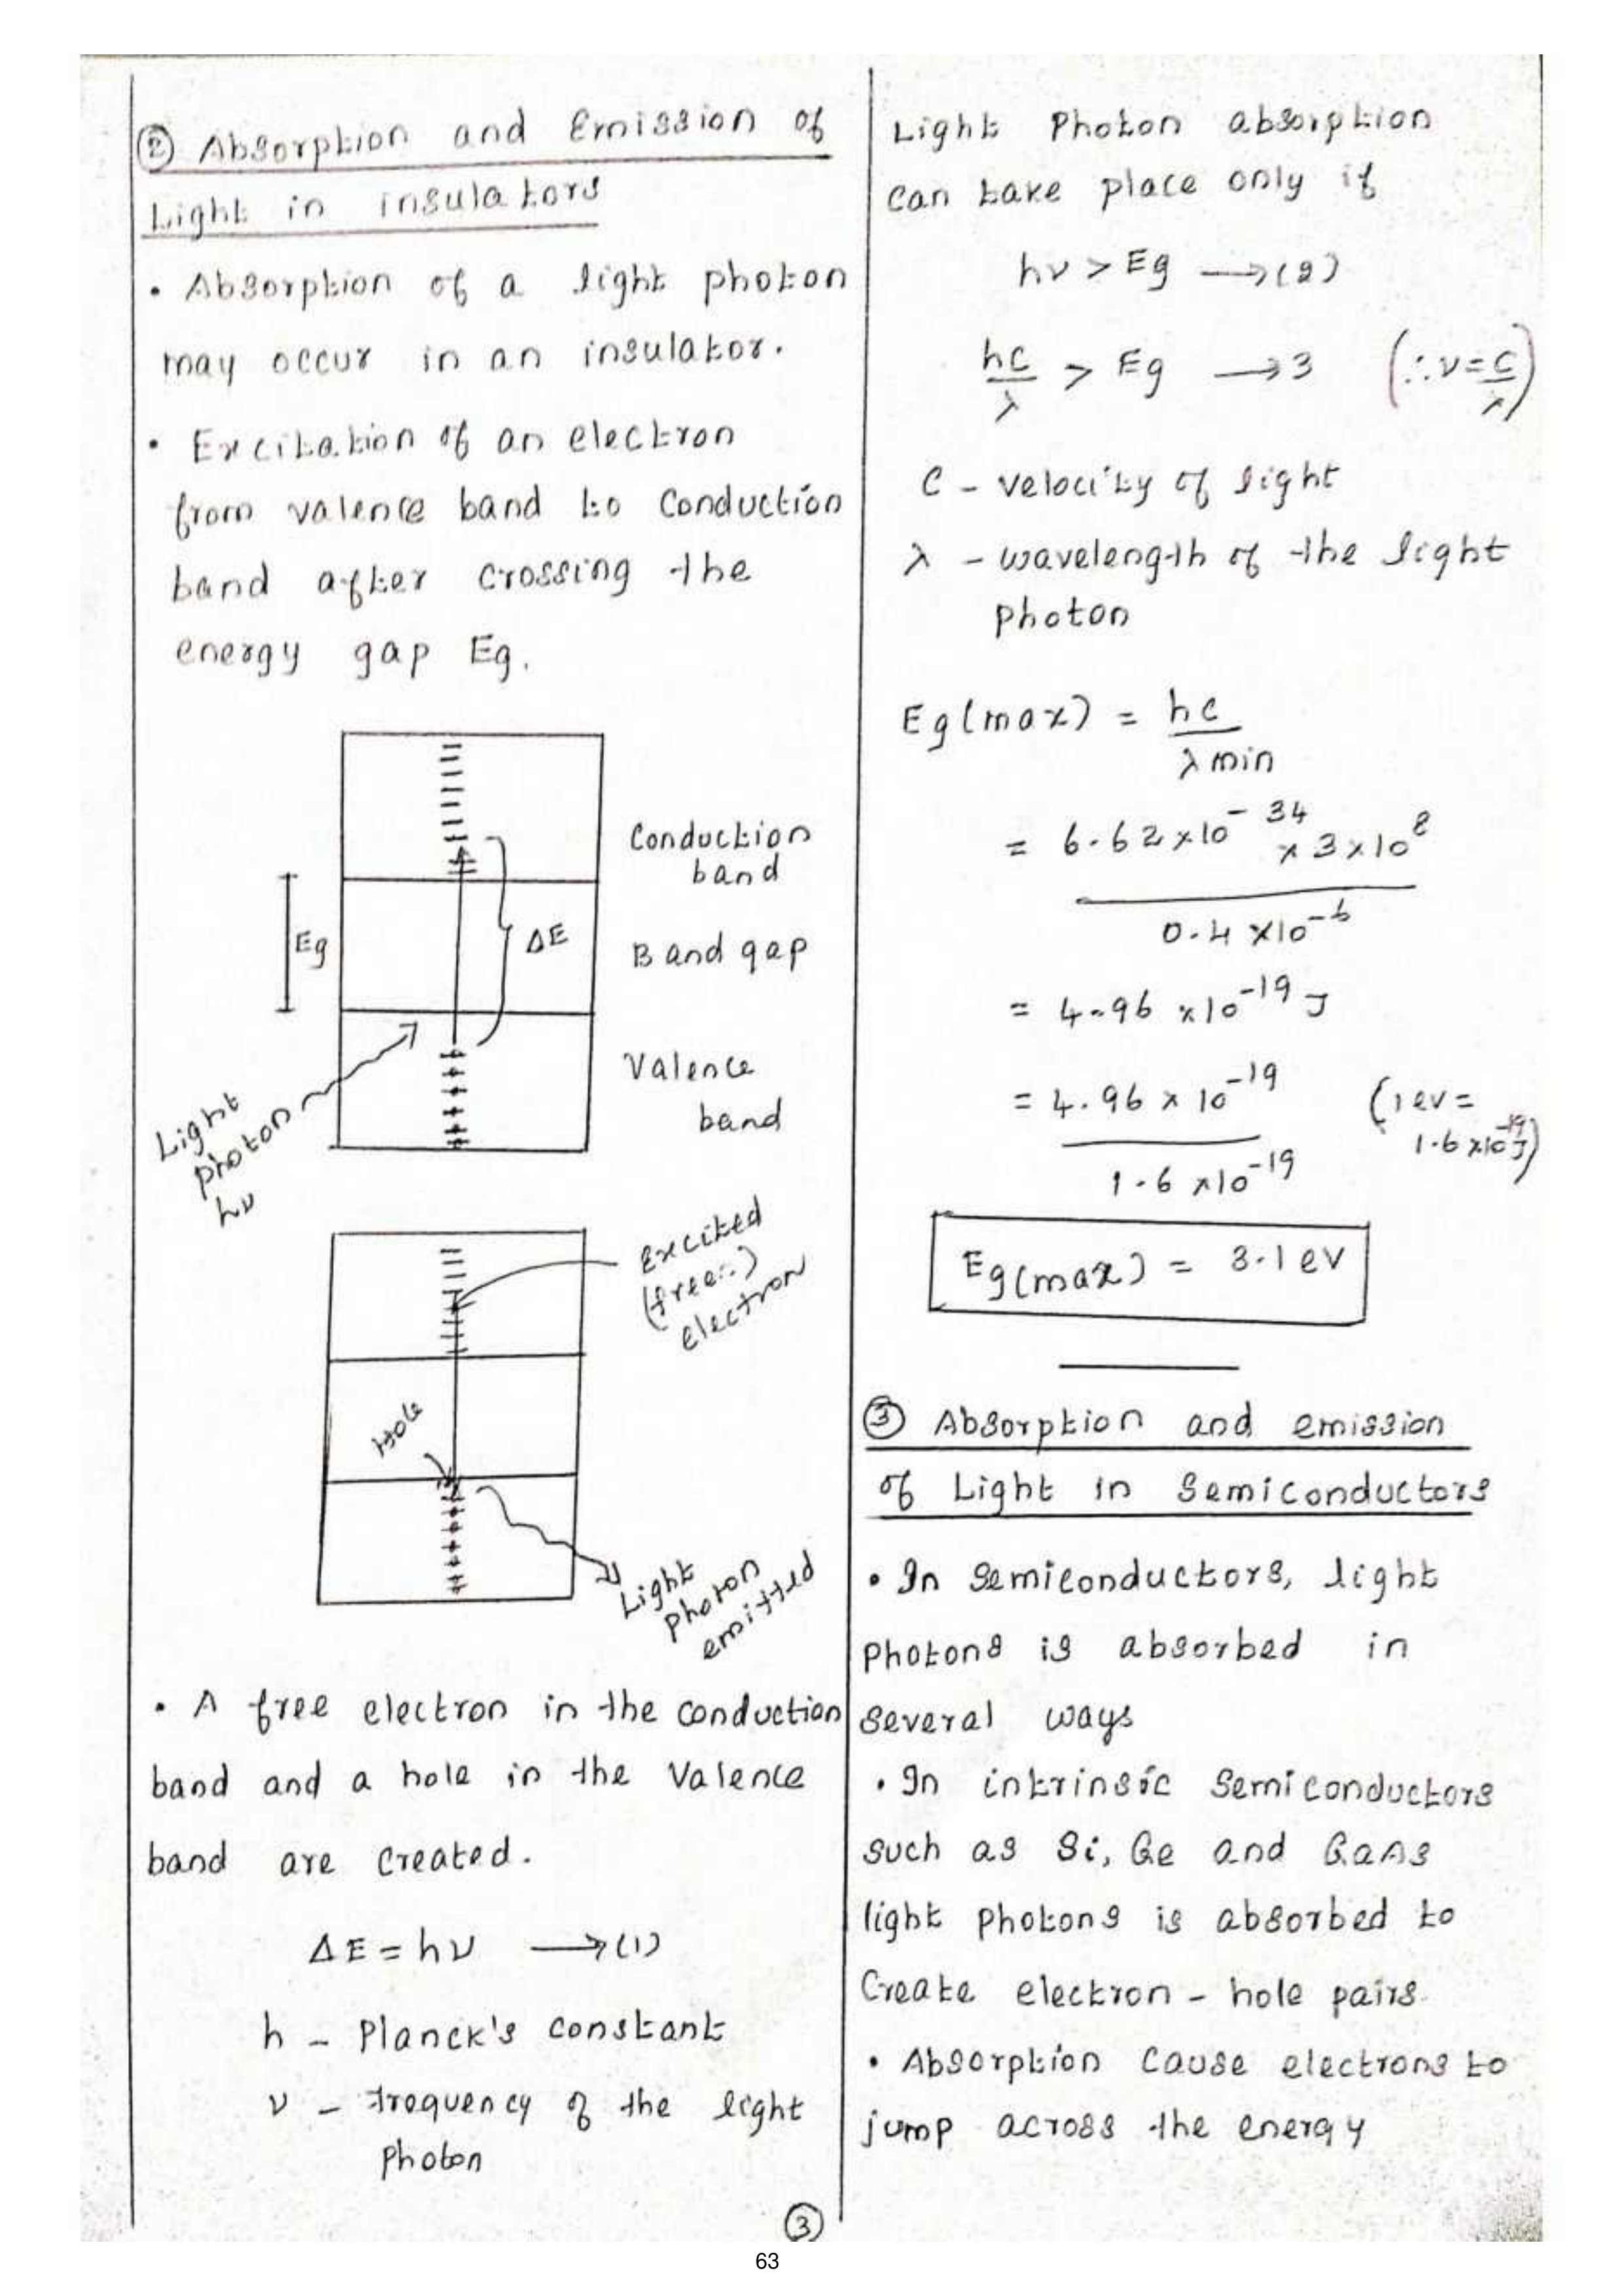 ② Absorption and Emission of
Light in insulators
• Absorption of a light photon
may occur in an insulator.
• Excitation of an electron
from valence band to conduction
band after crossing the
energy gap Eg.
Conduction
band
Eg
ΔE
Band gap
Valence
band
Light
photon
hν
Excited
electron
Hole
Light
photon
emitted
• A free electron in the conduction
band and a hole in the Valence
band are created.
ΔE = hν ⟶ (1)
h - Planck's constant
ν - frequency of the light
photon
Light Photon absorption
can take place only if
hν > Eg ⟶ (2)
hc/λ > Eg ⟶ 3 (∴ν = c/λ)
C - velocity of light
λ - wavelength of the light
photon
Eg(max) = hc/λ min
= 6.62 × 10⁻³⁴ × 3 × 10⁸
0.4 × 10⁻⁶
= 4.96 × 10⁻¹⁹ J
= 4.96 × 10⁻¹⁹ (1 ev =
1.6 × 10⁻¹⁹ J)
1.6 × 10⁻¹⁹
Eg(max) = 3.1 ev
③ Absorption and emission
of Light in Semiconductors
• In Semiconductors, light
photons is absorbed in
several ways
• In intrinsic Semiconductors
such as Si, Ge and GaAs
light photons is absorbed to
Create electron - hole pairs.
• Absorption cause electrons to
jump across the energy
③
63